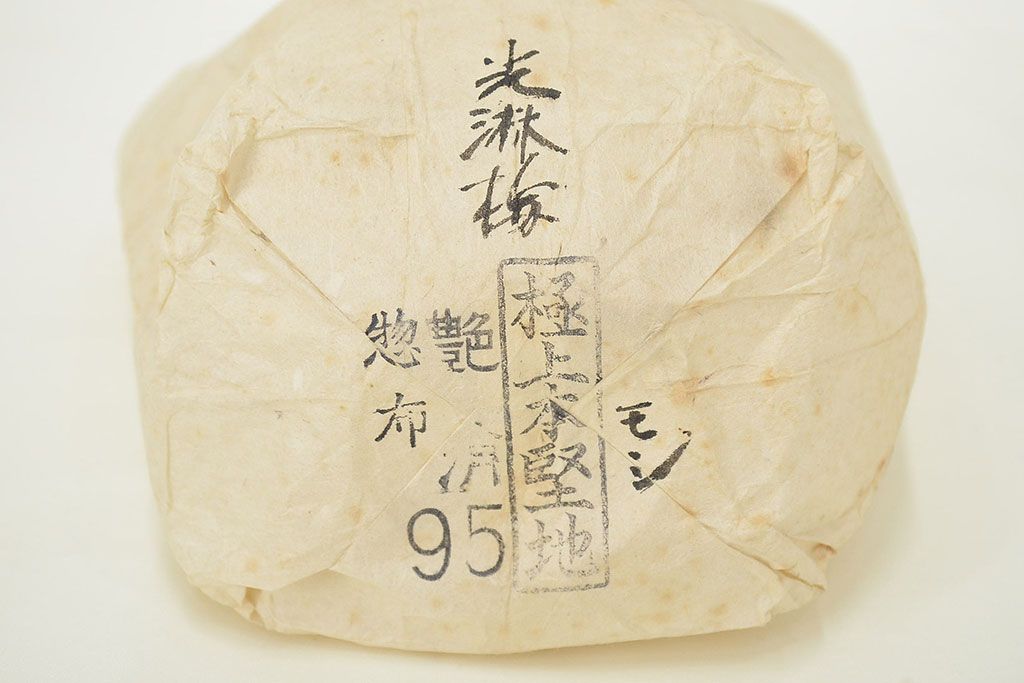 光淋梅
モシ
極上本堅地
艶消
惣布
95